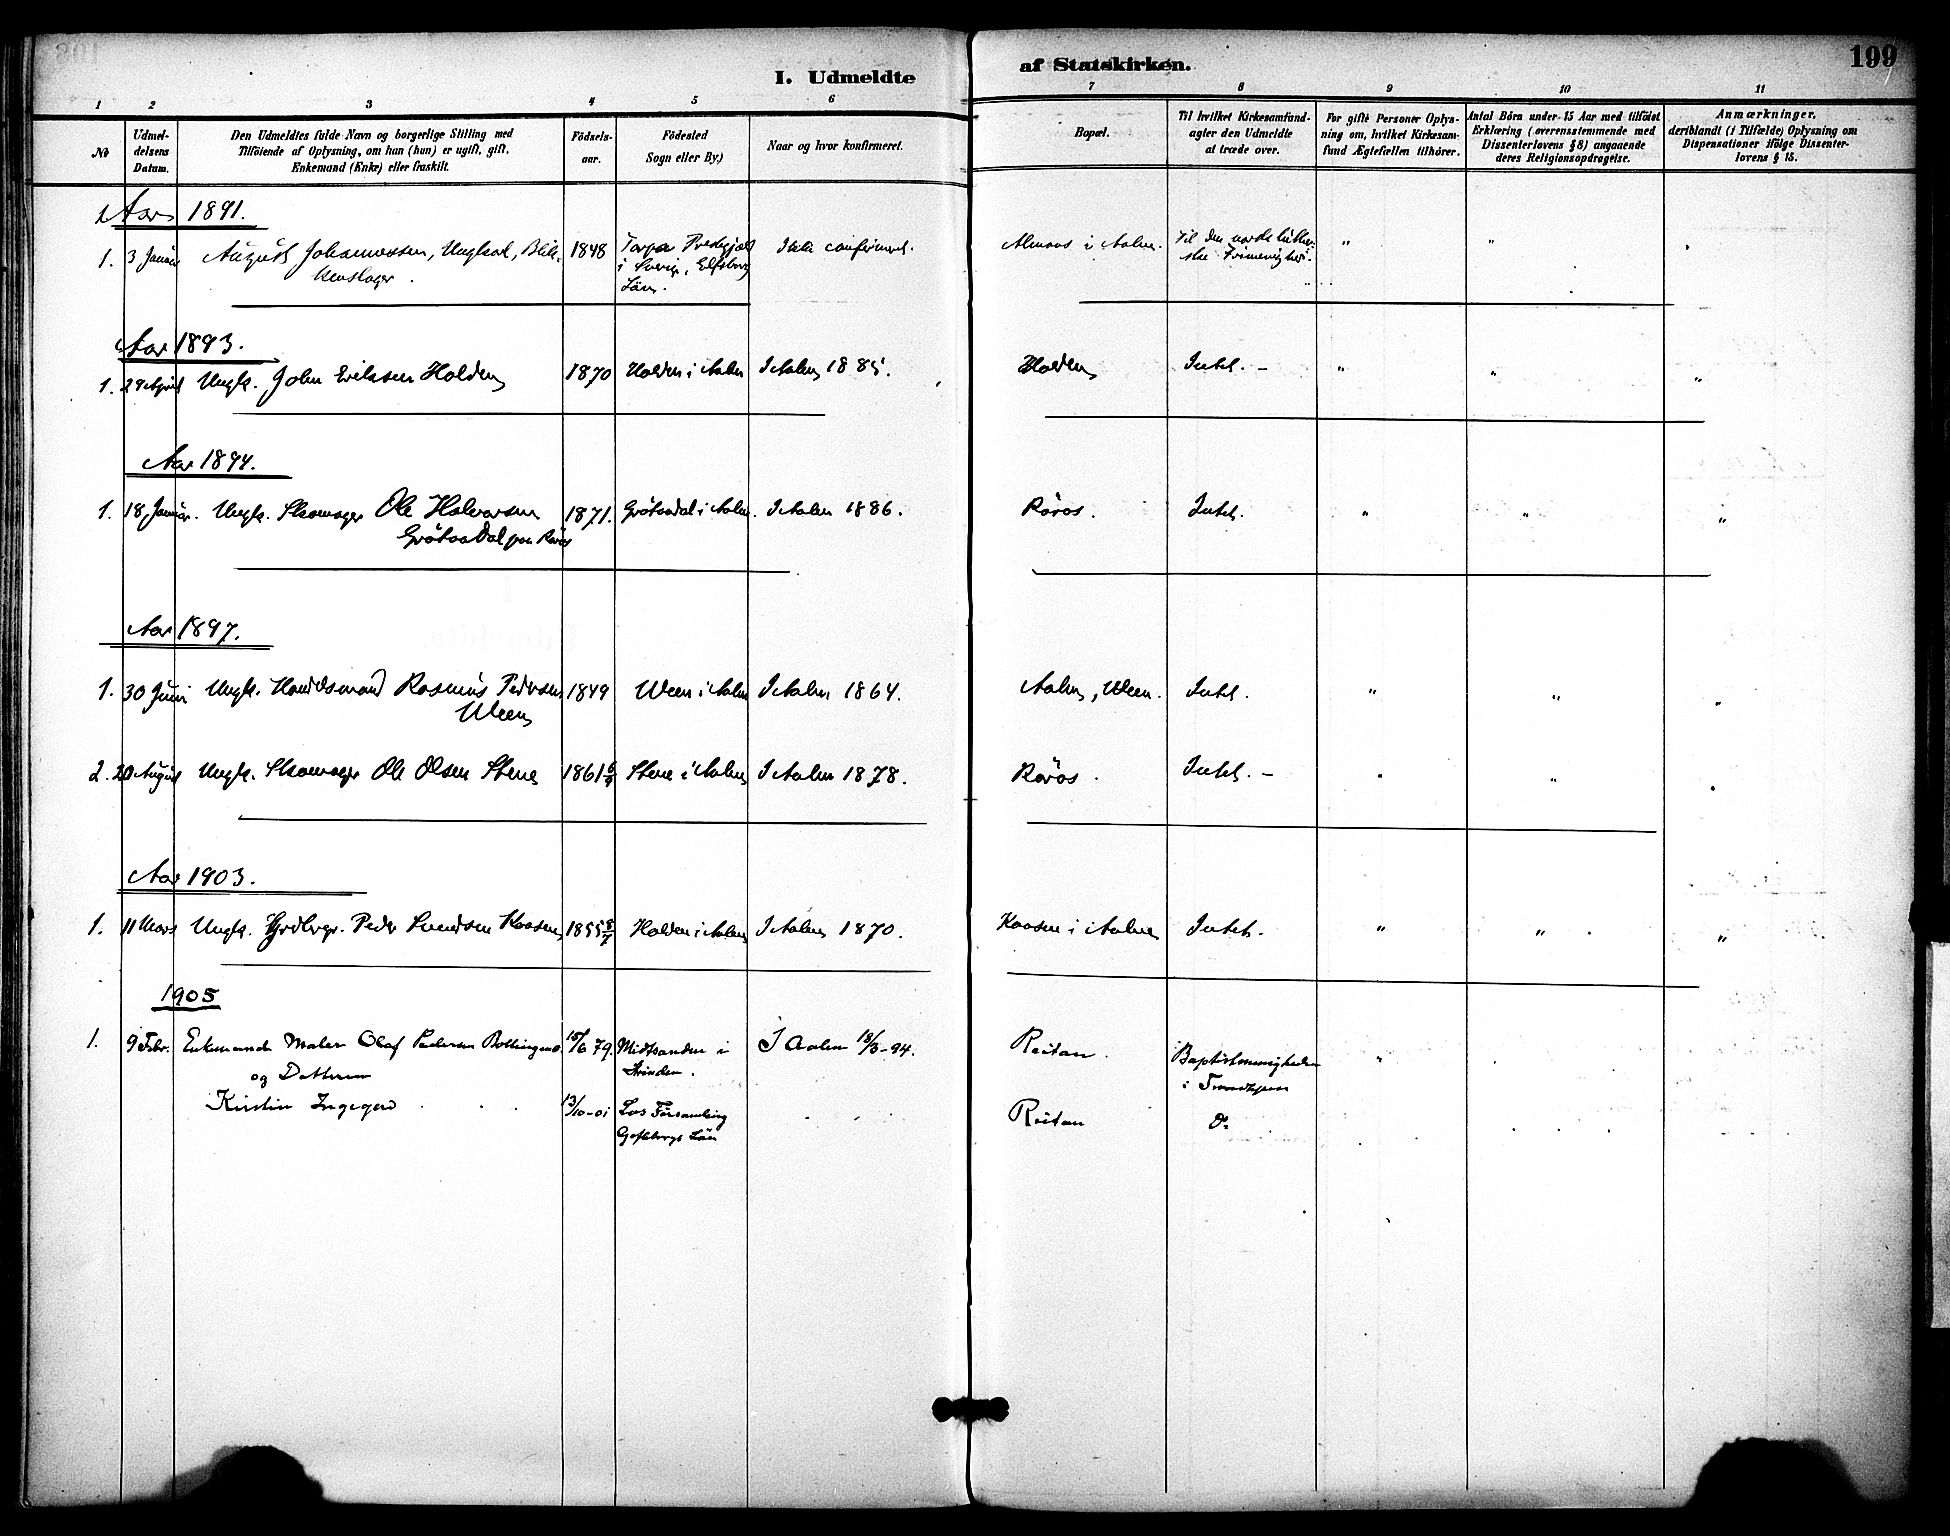 I. Udmeldte af Statskirken.
199
1 2 3 4 5 6 7 8 9 10 11
No
Udmel-
delsens
Datum.
Den Udmeldtes fulde Navn og borgerlige Stilling med
Tilföiende af Oplysning, om han (hun) er ugift, gift,
Enkemand (Enke) eller fraskilt.
Födsels-
aar.
Födested
Sogn eller By.)
Naar og hvor konfirmeret.
Bopæl.
Til hvilket Kirkesamfund-
agter den Udmeldte
at træde over.
For gifte Personer Oplys-
ning om, hvilket Kirkesam-
fund Ægtefællen tilhörer.
Antal Börn under 15 Aar med tilföiet
Erklæring (overensstemmende med
Dissenterlovens §8) angaaende
deres Religionsopdragelse.
Anmærkninger,
deriblandt (i Tilfælde) Oplysning om
Dispensationer ifölge Dissenter-
lovens § 15.
Aar 1891.
1. 3 Januar August Johannessen, Ungkarl, Blik- 1848 Torpa Prestgjæld Ikke confirmert. i Aalen. Til den norske luther- " " "
kenslager. i Sverige, Elfsborg ske Frimenighed.
Län.
Aar 1893.
1. 29 April Ungk. John Eriksen Holden 1870 Holden i Aalen I Aalen 1885. Holden Intet. – " " "
Aar 1894.
1. 18 Januar. Ungk. Skomager Ole Halvorsen 1871. Grötaadal i Aalen. I Aalen 1886. Röros. Intet. " " "
Grötaadal paa Röros
Aar 1897.
1. 30 Juni Ungk. Handelsmand Rasmus Pedersen 1849 Ween i Aalen I Aalen 1864. Aalen, Ween. Intet. " " "
Ween
2. 20 August Ungk. Skomager Ole Olsen Stene 1861 6/9 Stene i Aalen I Aalen 1878. Röros. Intet. – " " "
Aar 1903.
1. 11 Mars Ungk. Jordbrgr. Peder Svendsen Kaasen 1855 8/7 Holden i Aalen I Aalen 1870. Kaasen i Aalen Intet. " " "
1905
1. 9 Febr. Enkemand Maler Olaf Pedersen 15/6 79. Midtsanden i I Aalen 18/3-94. Reitan. Baptistmenigheden "
og Datteren Strinden. i Trondhjem
Kirstin Ingegerd 13/10-01 Los Församling Reitan Do
Gefleborgs Län